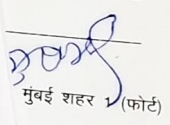 मुंबई शहर (फोर्ट)